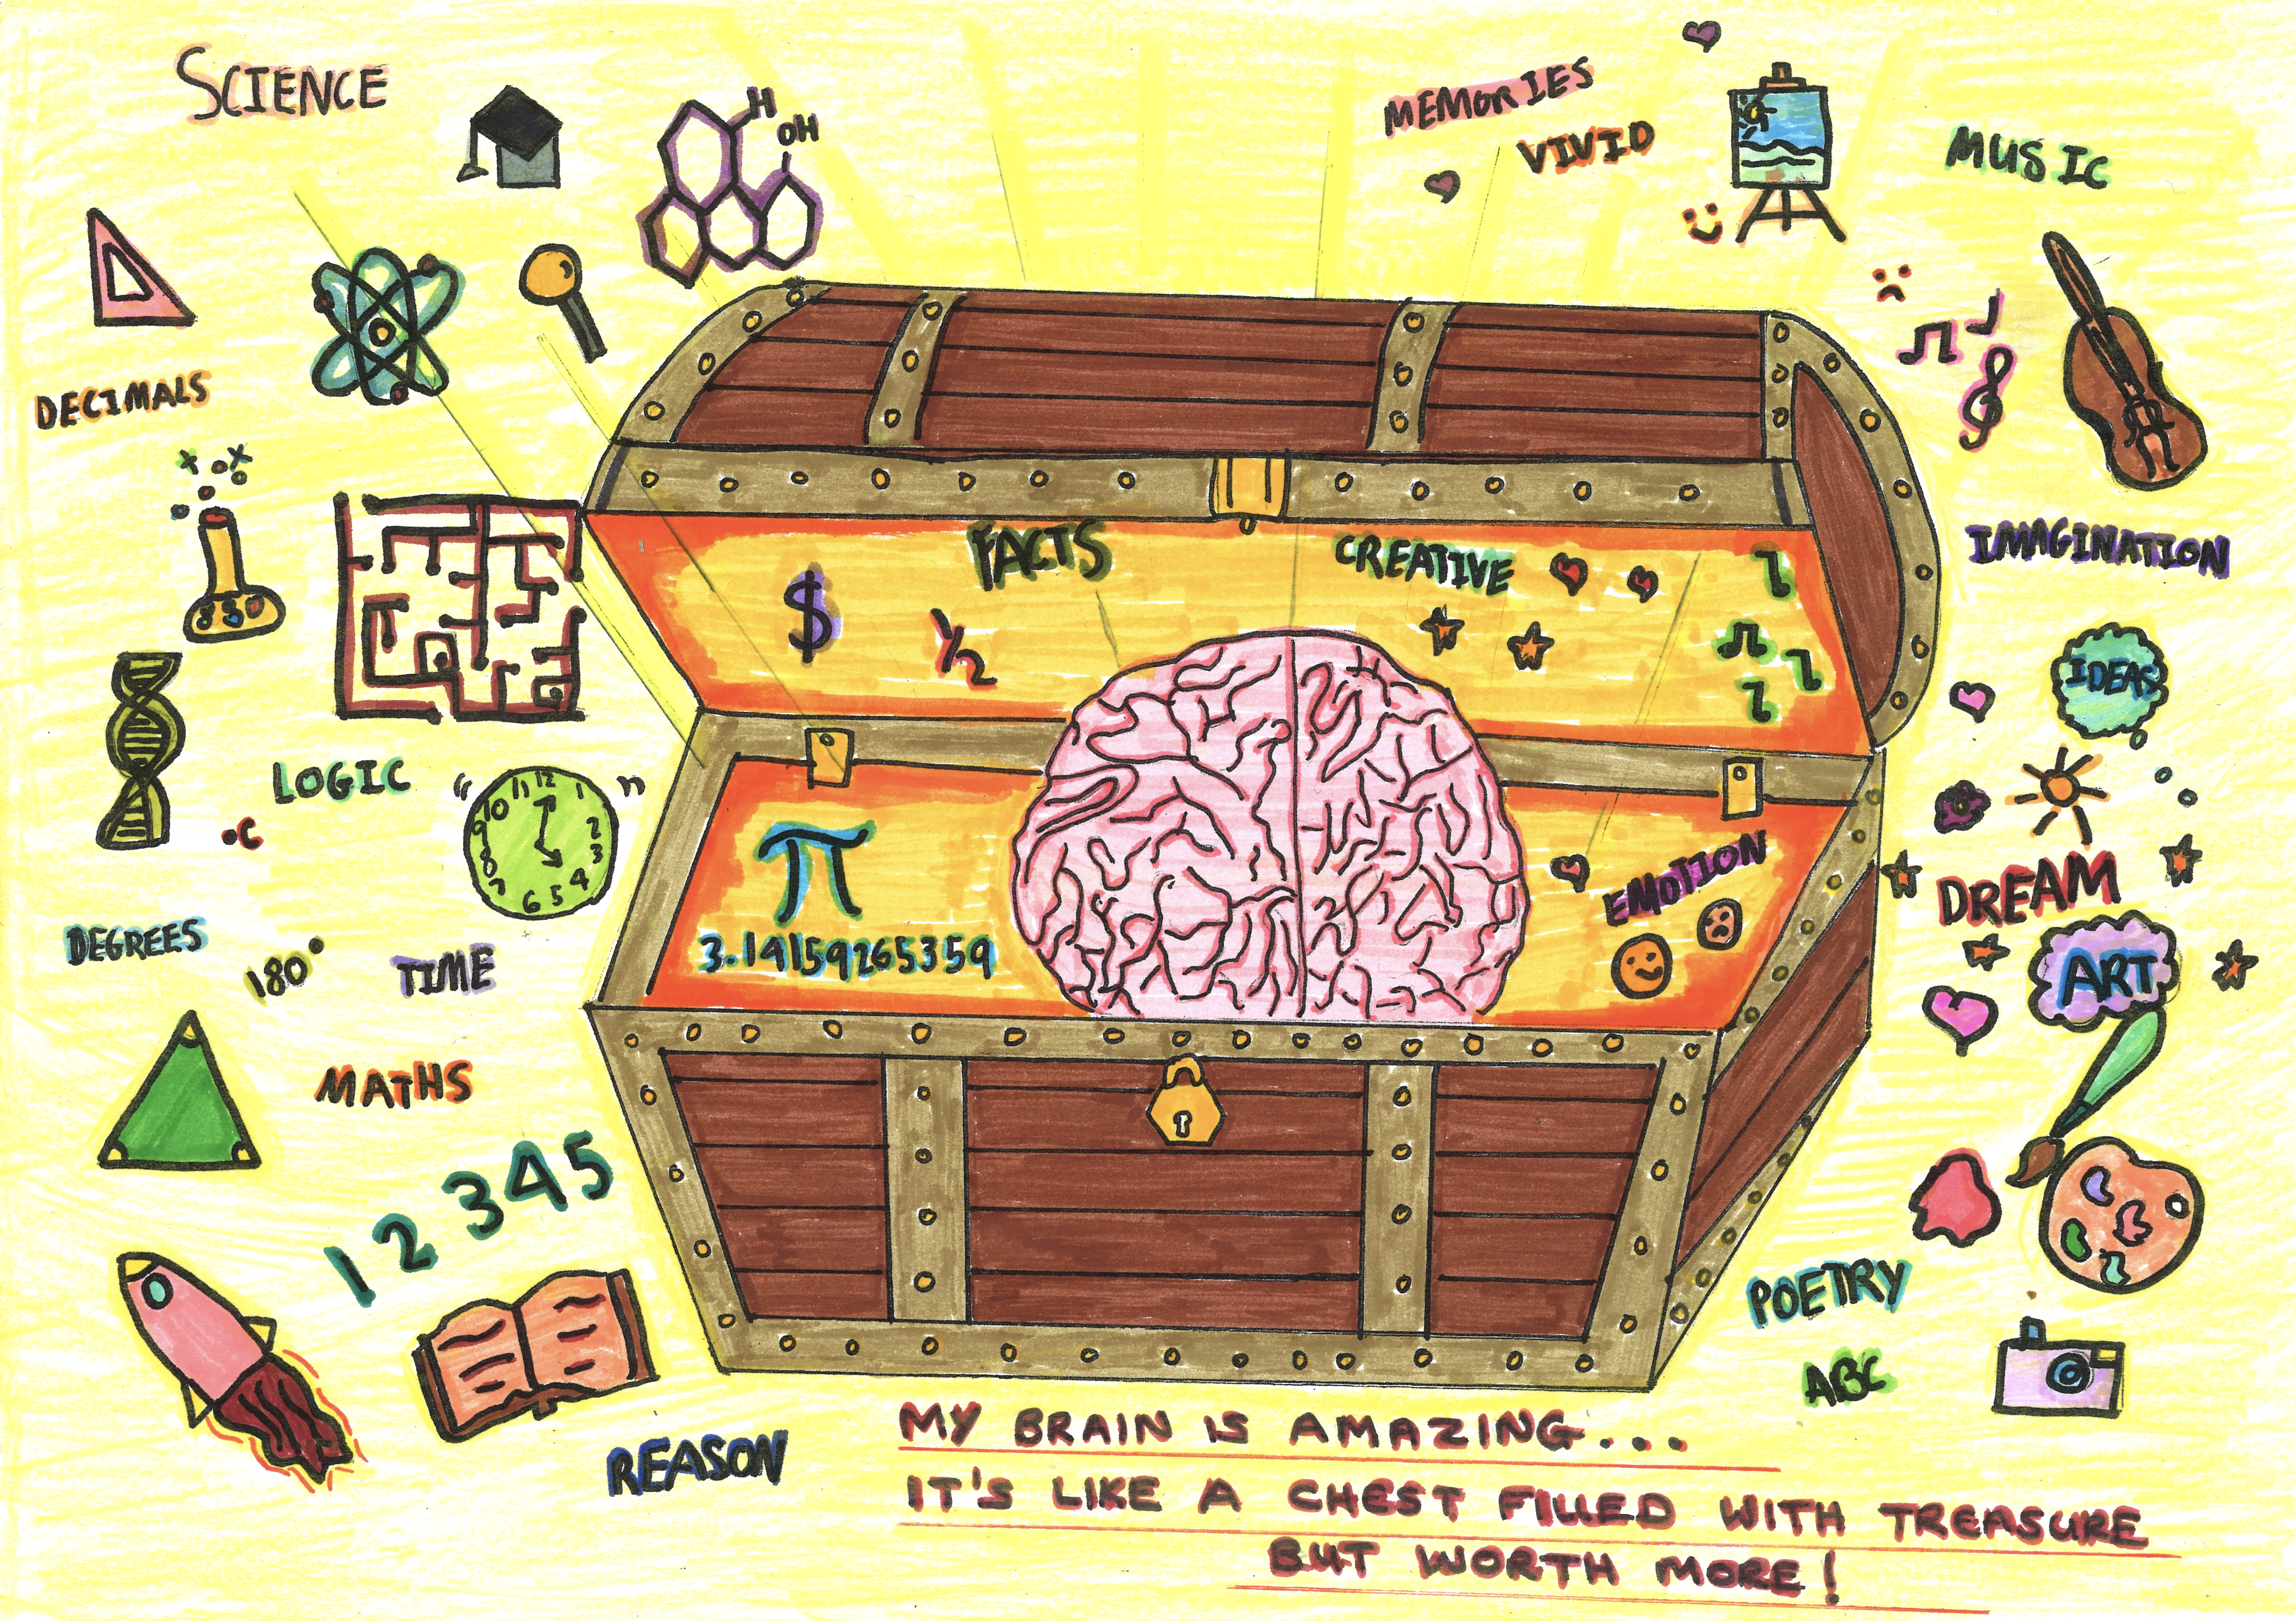 SCIENCE
H
OH
MEMORIES
VIVID
MUSIC
DECIMALS
FACTS
CREATIVE
$
1/2
IMAGINATION
IDEAS
LOGIC
°C
12 1 2 3 4 5 6 7 8 9 10 11
π
3.14159265359
EMOTION
DREAM
ART
DEGREES
180°
TIME
MATHS
1 2 3 4 5
POETRY
ABC
REASON
MY BRAIN IS AMAZING...
IT'S LIKE A CHEST FILLED WITH TREASURE
BUT WORTH MORE!